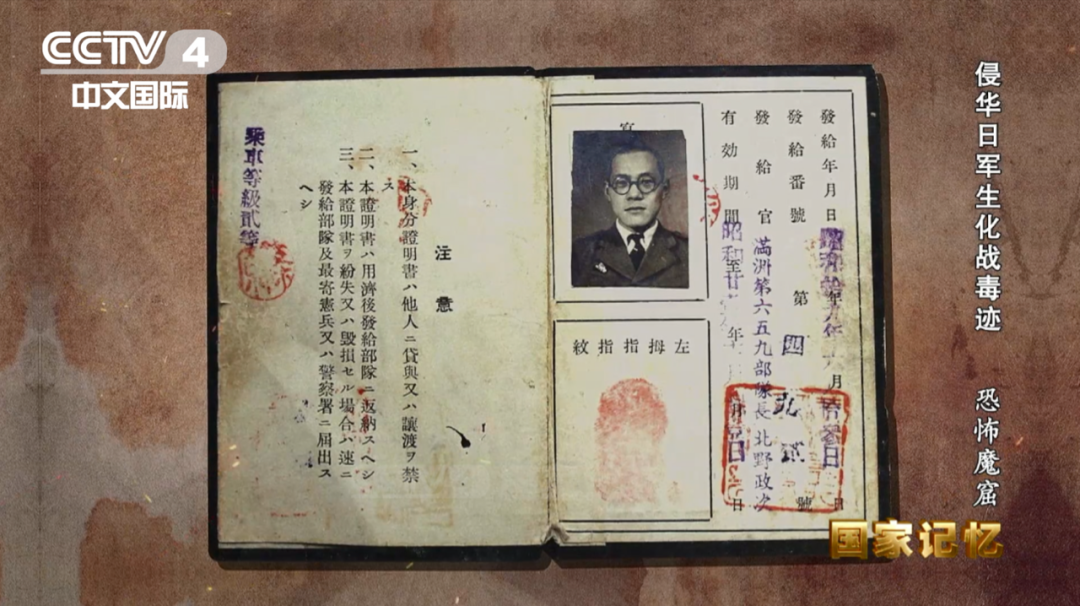 CCTV 4
中文国际
侵华日军生化战毒迹
恐怖魔窟
國家记忆
發給年月日
月
日
發給番號
第
四
號
發給官
滿洲第六五九部隊長 北野政次
有効期間
昭和
至
廿
年
月
日
左拇指指紋
注意
一、本身分證明書ハ他人ニ貸與又ハ讓渡ヲ禁
ス
二、本證明書ハ用濟後發給部隊ニ返納スヘシ
三、本證明書ヲ紛失又ハ毀損セル場合ハ速ニ
發給部隊及最寄憲兵又ハ警察署ニ屆出ス
ヘシ
乘車等級貳等